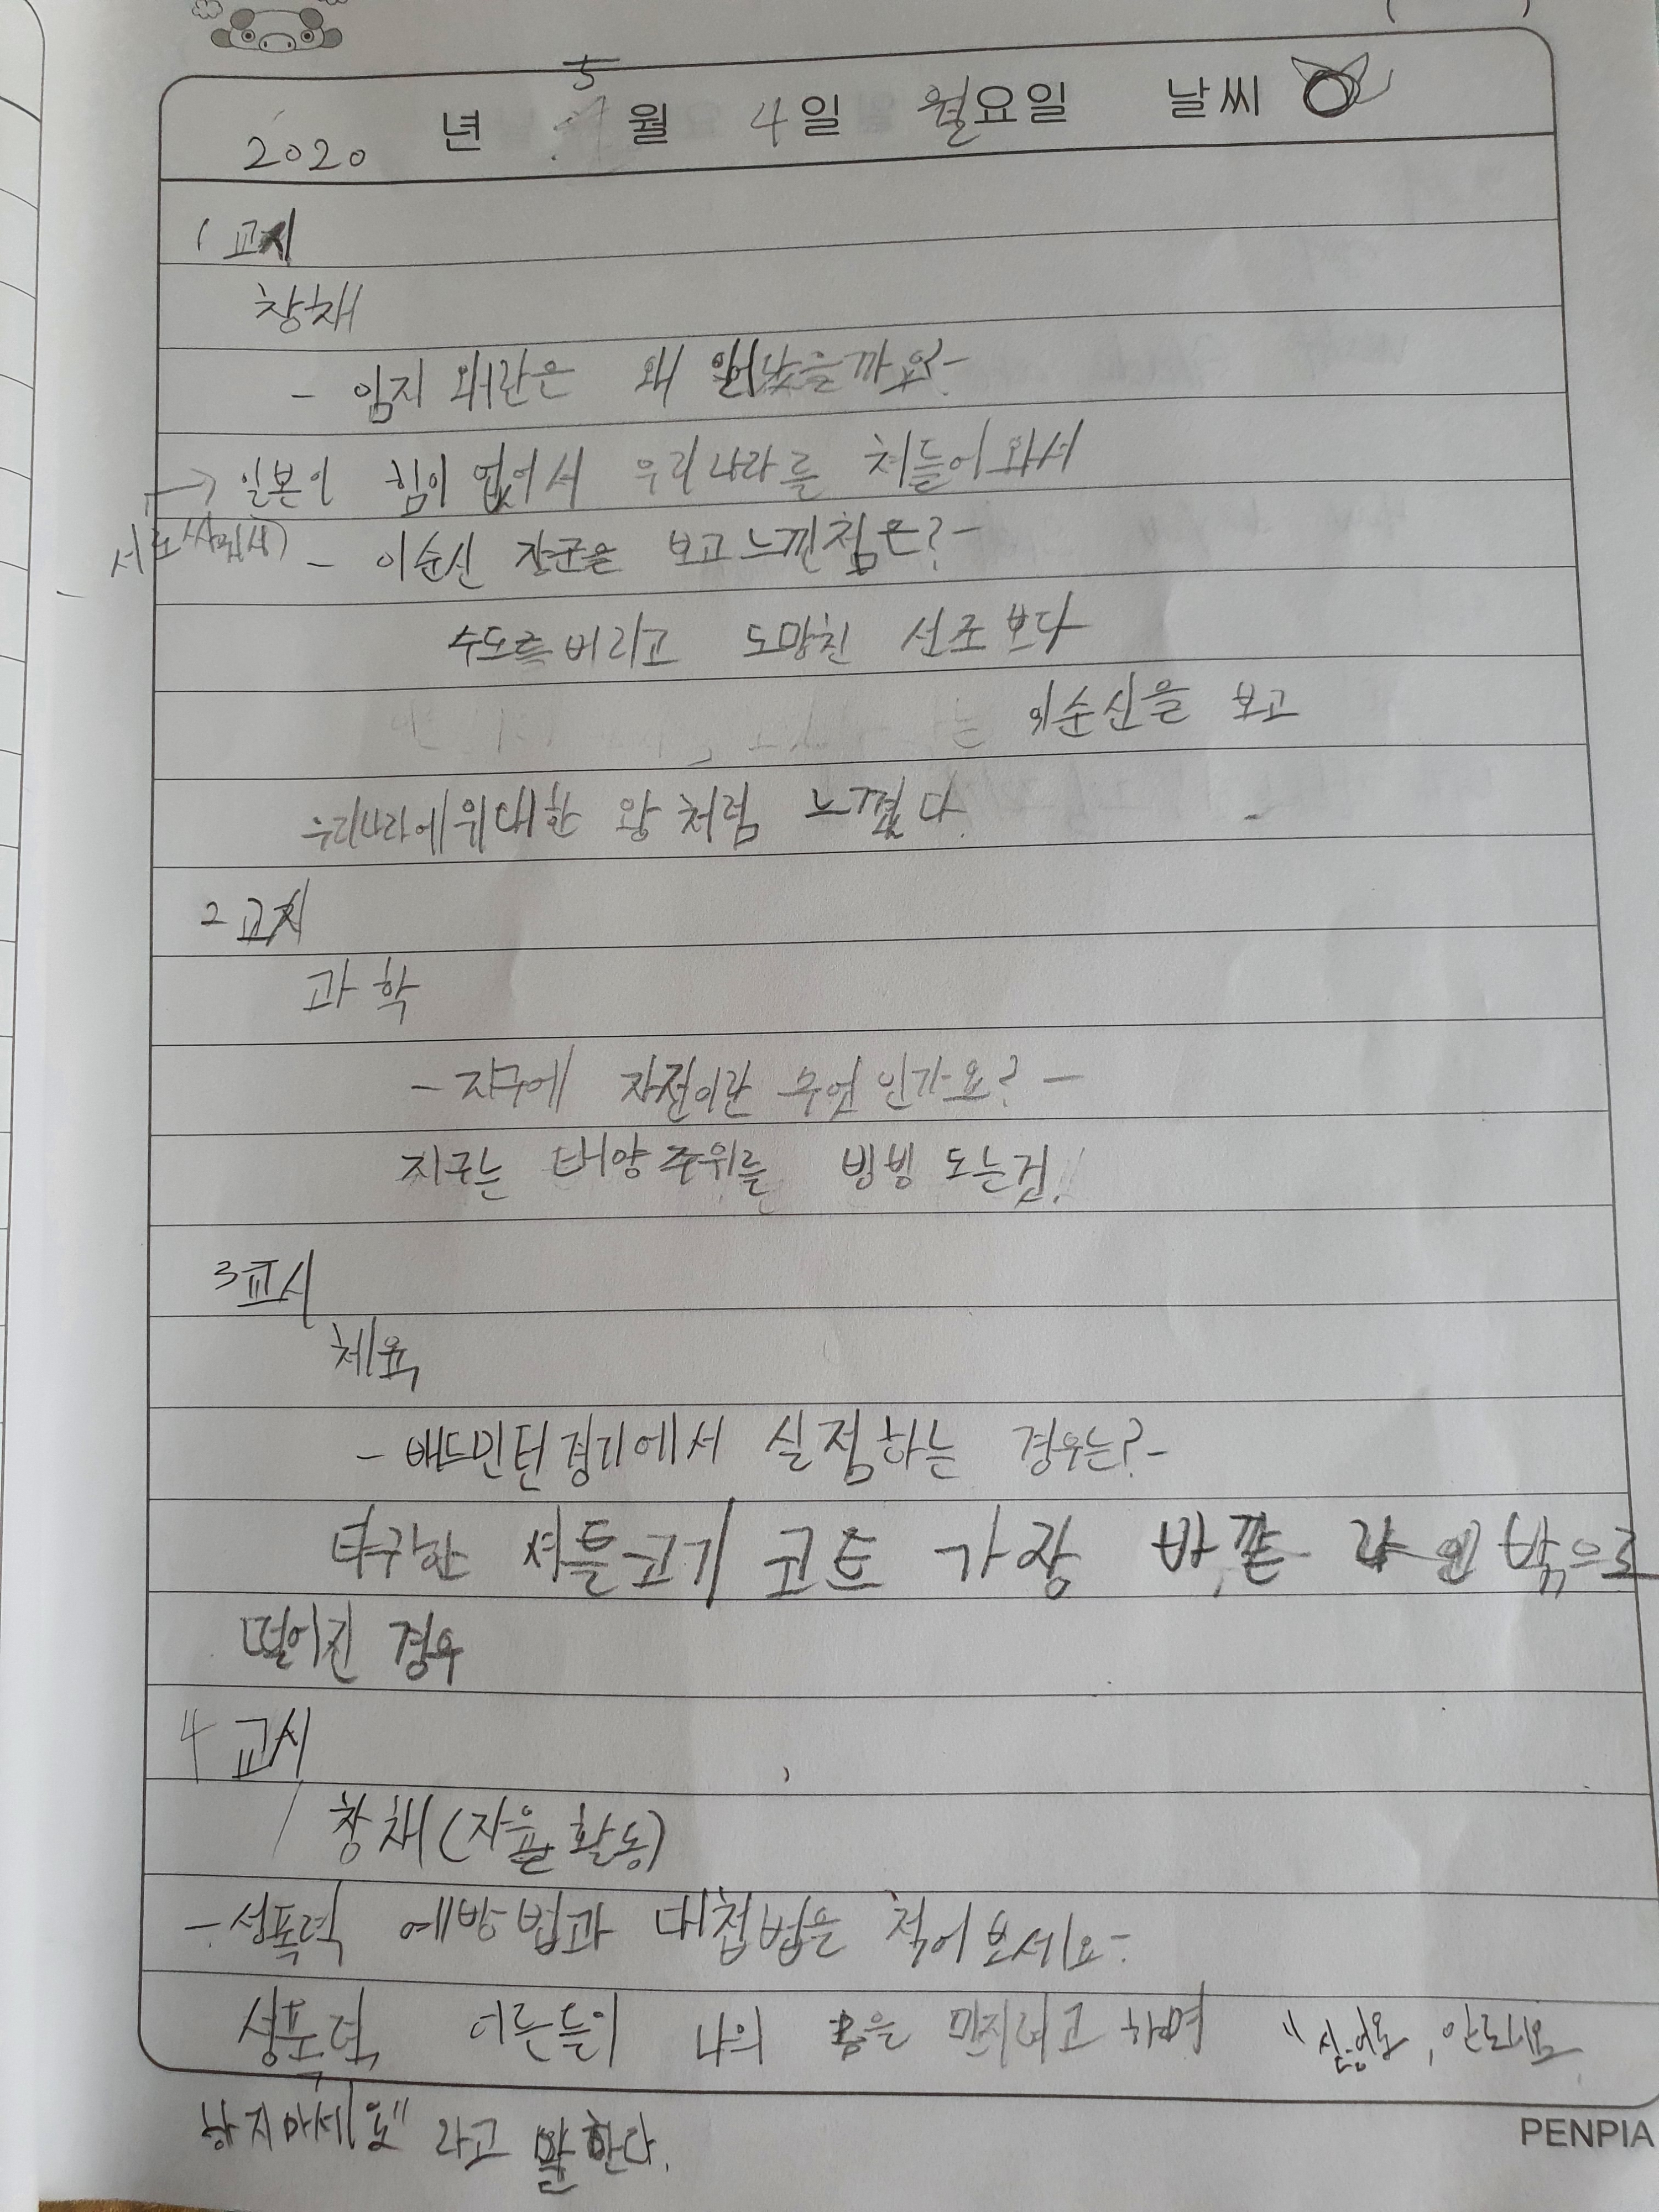 2020 년 5월 4일 월요일 날씨
1교시
창채
- 임지 왜란은 왜 일어났을까요?-
→ 일본이 힘이 없어서 우리나라를 처들어와서
서로
- 이순신 장군을 보고 느낀점은?-
수도를 버리고 도망친 선조보다
이순신을 보고
우리나라에 위대한 왕 처럼 느꼈다.
2교시
과학
- 지구에 자전이란 무엇인가요? -
지구는 태양주위를 빙빙 도는것!
3교시
체육
- 배드민턴경기에서 실점하는 경우는?-
타구한 셔틀고기 코트 가장 바깥 라인 밖으로
떨어진 경우
4교시
창채(자율활동)
- 성폭력 예방법과 대첩법을 적어보세요-
성폭력 어른들이 나의 몸을 만지려고 하며 "싫어요, 안되요
하지마세요" 라고 말한다.
PENPIA